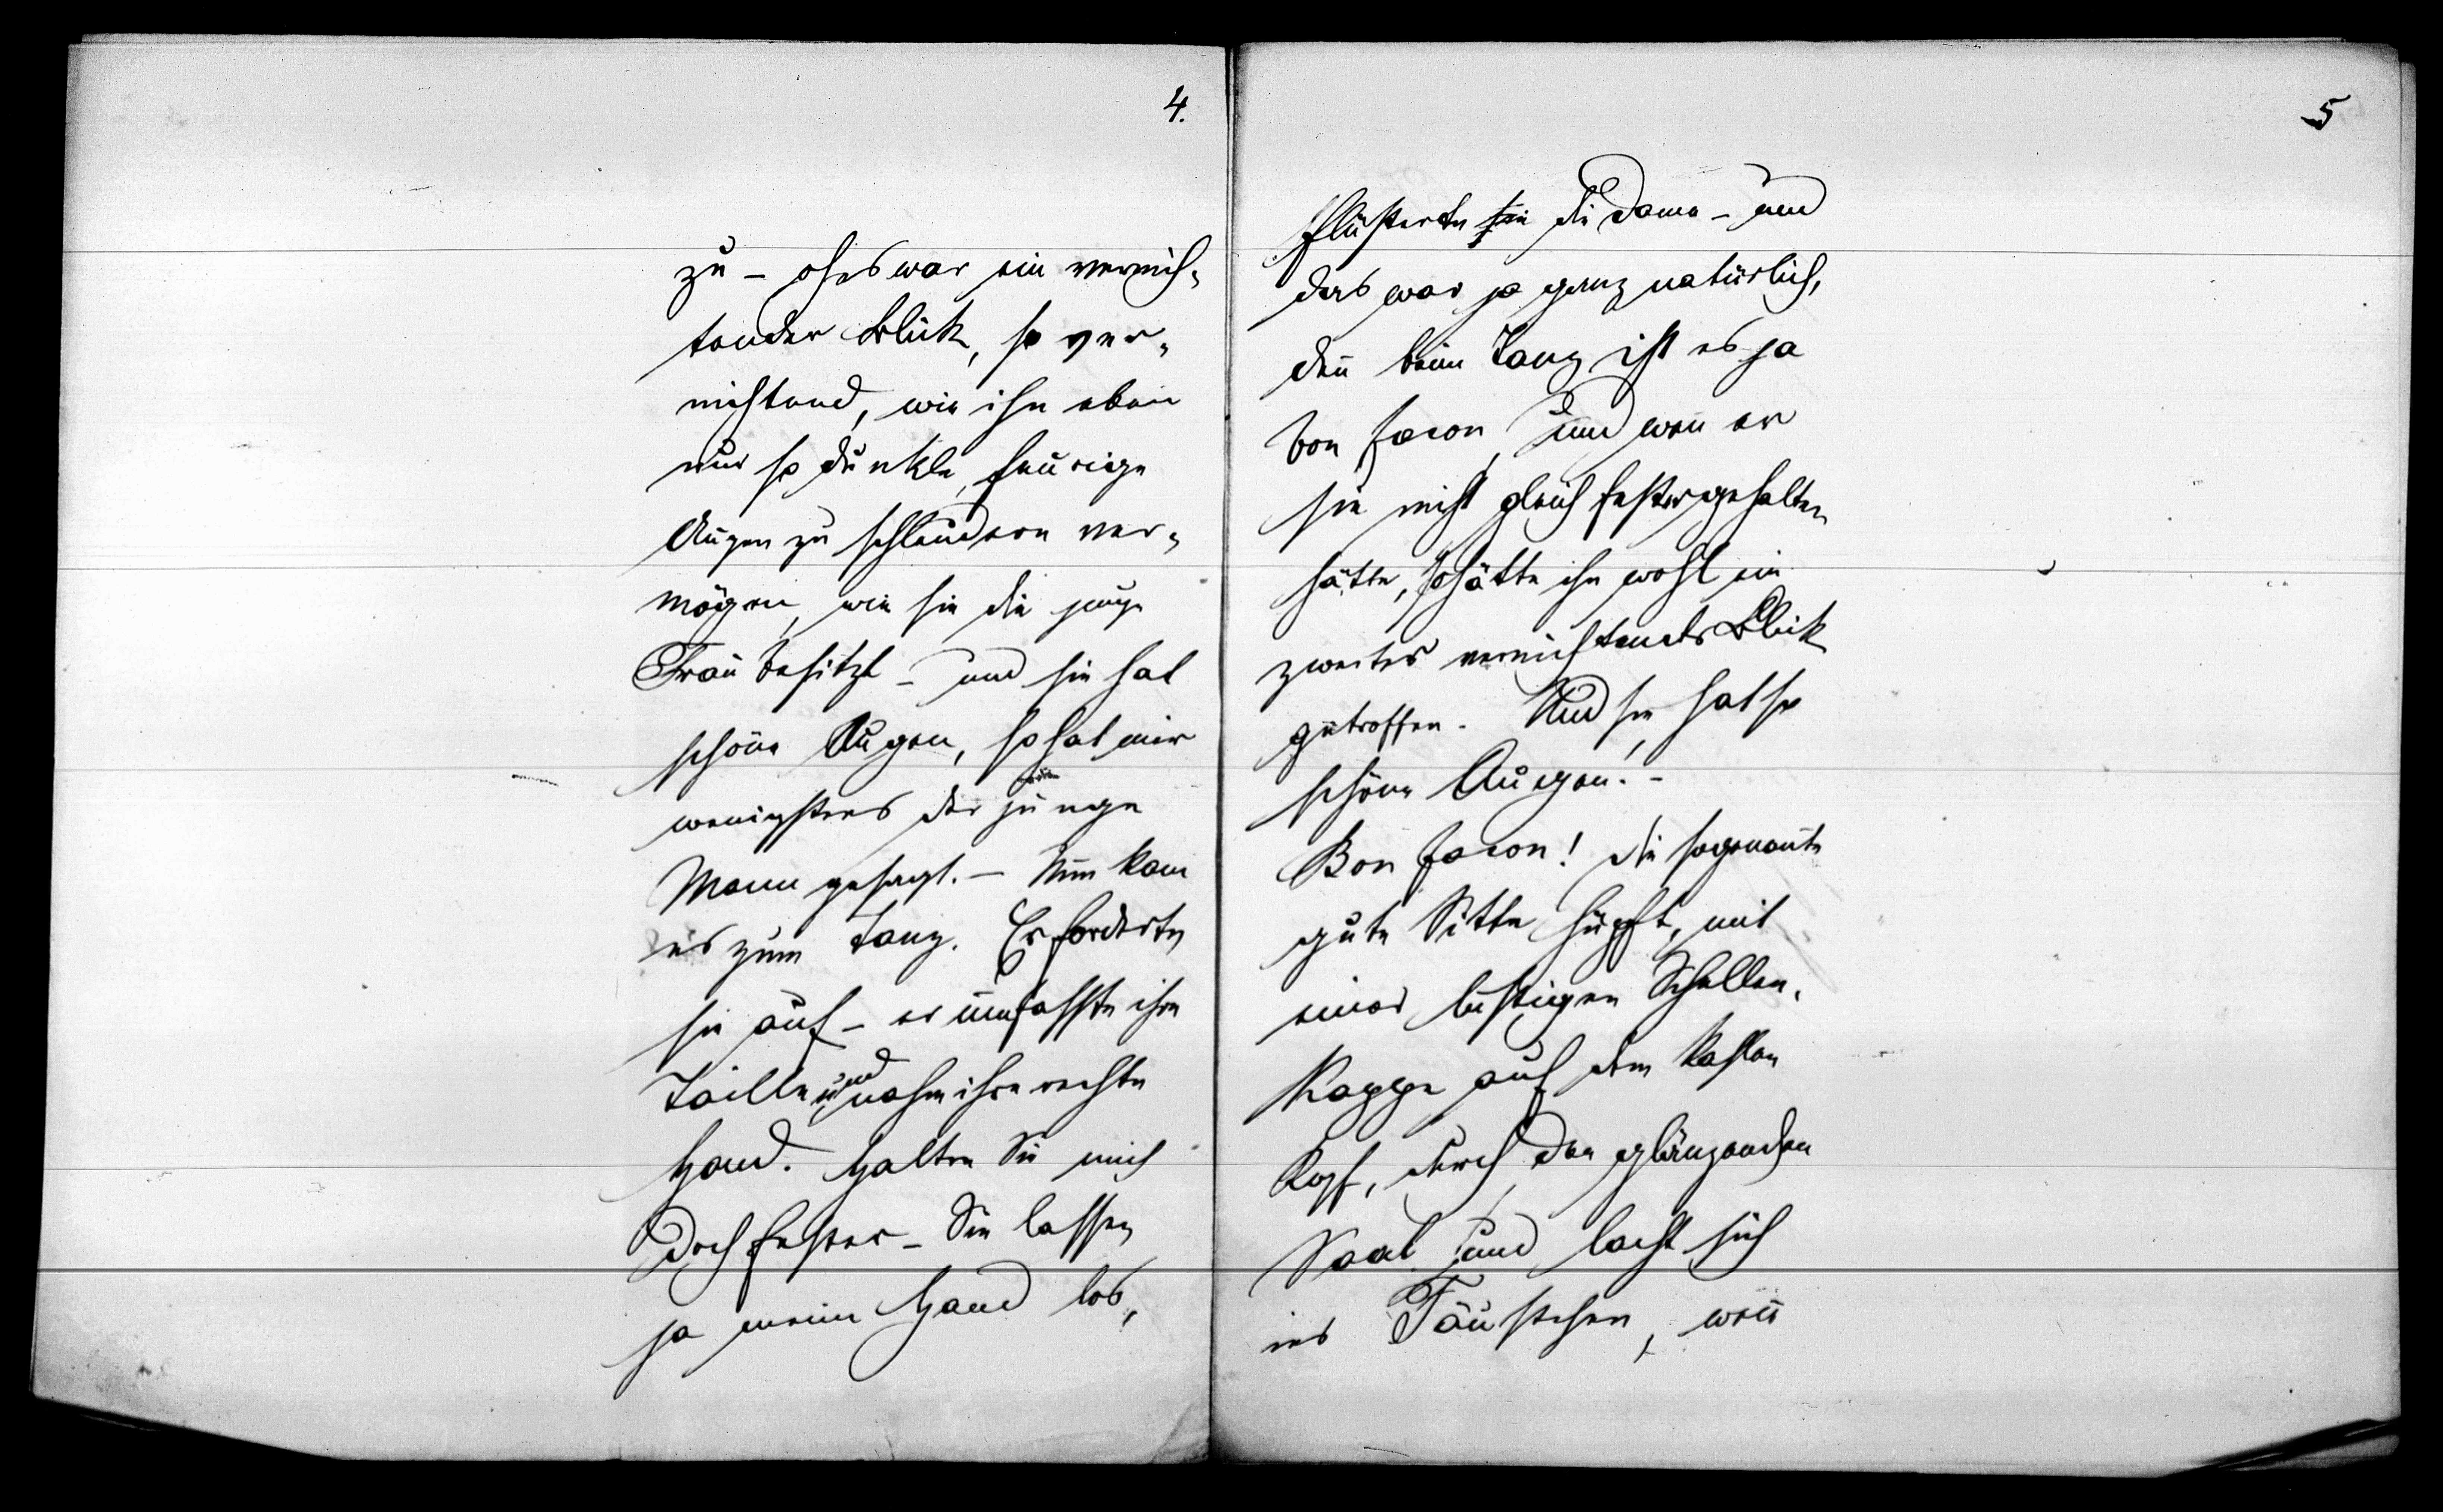 4.
zu – oh es war ein vernich-
tender Blick, so ver-
nichtend, wie ihn eben
nur so dunkle, feurige
Augen zu schleudern ver-
mögen, wie sie die junge
Frau besitzt – und sie hat
schöne Augen, so hat mir
wenigstens der junge
Mann gesagt. – Nun kam
es zum Tanz. Er forderte
sie auf – er umfasste ihre
Taille und nahm ihre rechte
Hand. Halten Sie mich
doch fester – Sie lassen
ja meine Hand los,
5
flüsterte sie die Dame – und
das war ja ganz natürlich,
deñ beim Tanz ist es ja
bon facon, und weñ er
sie nicht gleich fester gehalten
hätte, so hätte ihn wohl ein
zweiter vernichtender Blick
getroffen. Und sie hat so
schöne Augen. –
Bon facon! die sogenañte
gute Sitte hüpft, mit
einer lustigen Schellen-
Kappe auf dem kahlen
Kopf, durch den glänzenden
Saal und lacht sich
ins Fäustchen, weñ